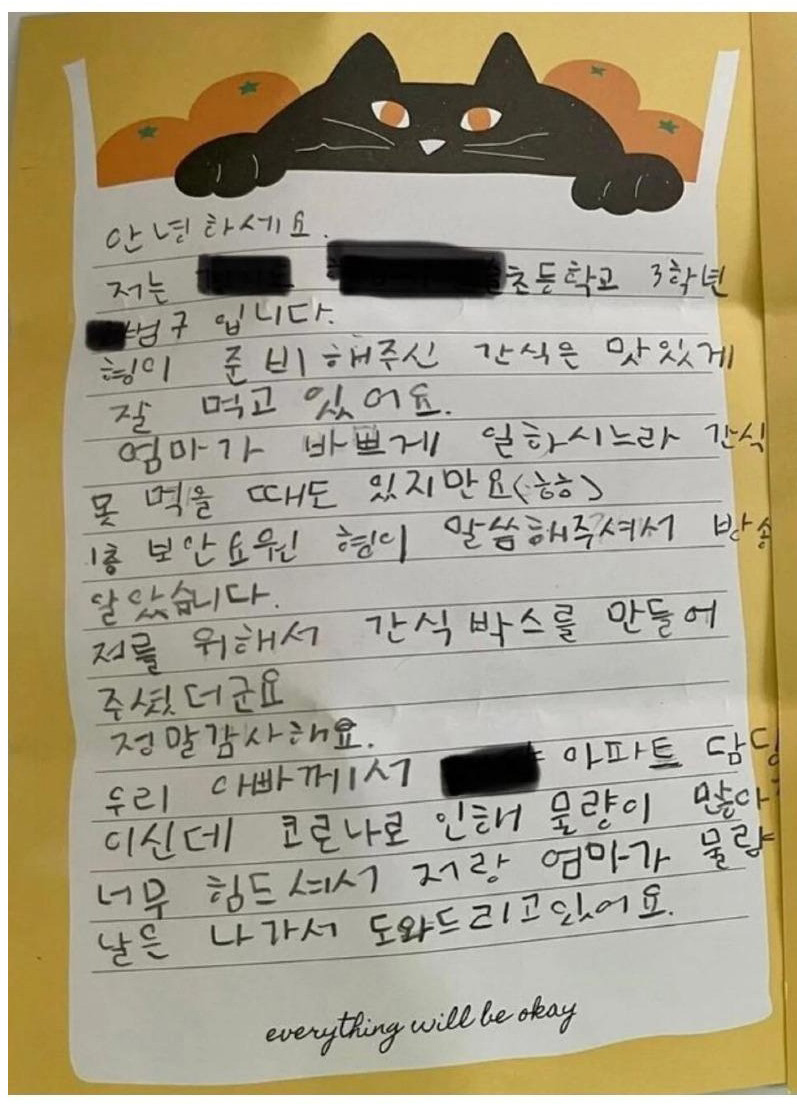 안녕하세요.
저는 초등학교 3학년
범구 입니다.
형이 준비해주신 간식은 맛있게
잘 먹고 있어요.
엄마가 바쁘게 일하시느라 간식
못 먹을 때도 있지만요(흐흐)
1층 보안요원 형이 말씀해주셔서 방송
알았습니다.
저를 위해서 간식박스를 만들어
주셨더군요
정말감사해요.
우리 아빠께서 아파트 담당
이신데 코로나로 인해 물량이 많아
너무 힘드셔서 저랑 엄마가 물량
날은 나가서 도와드리고있어요.
everything will be okay